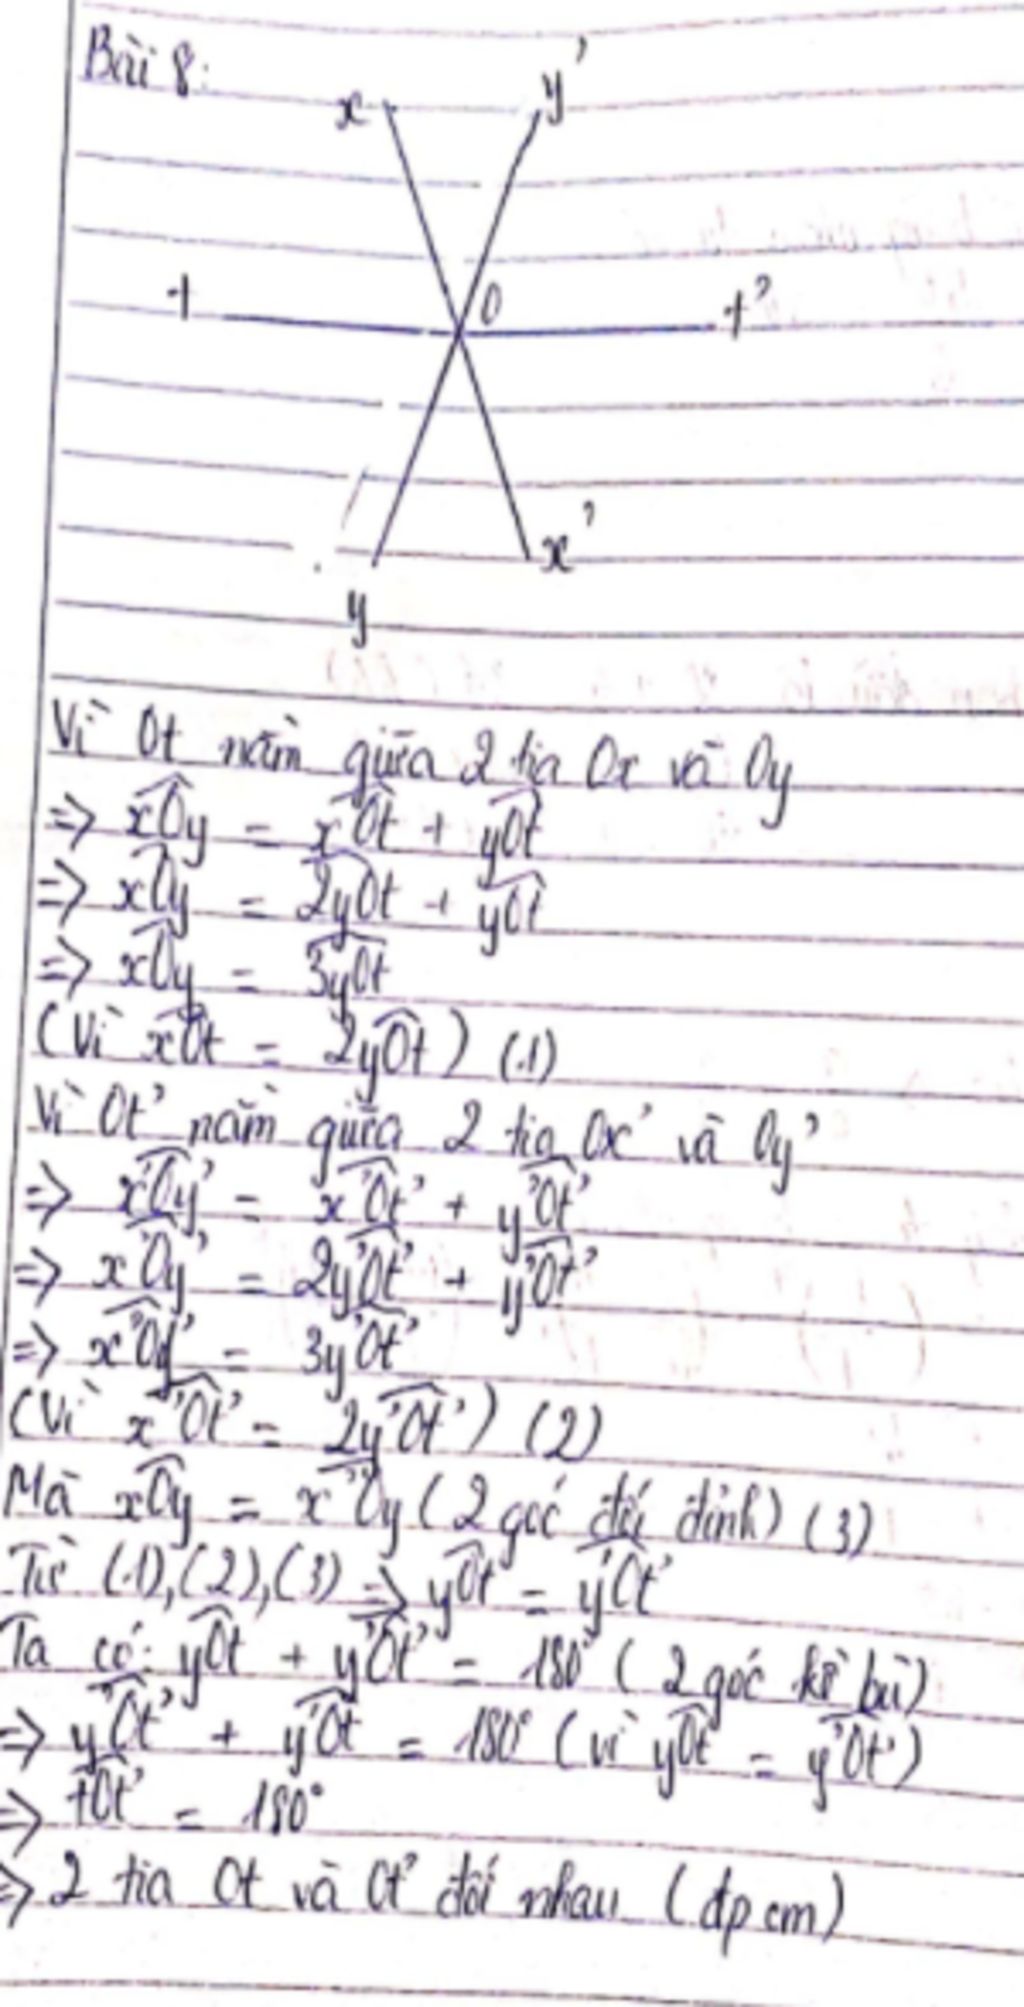 Bài 8:
x y'
t O t'
y x'
Vì Ot nằm giữa 2 tia Ox và Oy
=> xOy = xOt + yOt
=> xOy = 2yOt + yOt
=> xOy = 3yOt
(Vì xOt = 2yOt) (1)
Vì Ot' nằm giữa 2 tia Ox' và Oy'
=> x'Oy' = x'Ot' + y'Ot'
=> x'Oy' = 2y'Ot' + y'Ot'
=> x'Oy' = 3y'Ot'
(Vì x'Ot' = 2y'Ot') (2)
Mà xOy = x'Oy (2 góc đối đỉnh) (3)
Từ (1),(2),(3) => yOt = y'Ot'
Ta có: yOt + y'Ot = 180° (2 góc kề bù)
=> y'Ot' + y'Ot = 180° (vì yOt = y'Ot')
=> tOt' = 180°
=> 2 tia Ot và Ot' đối nhau (đpcm)